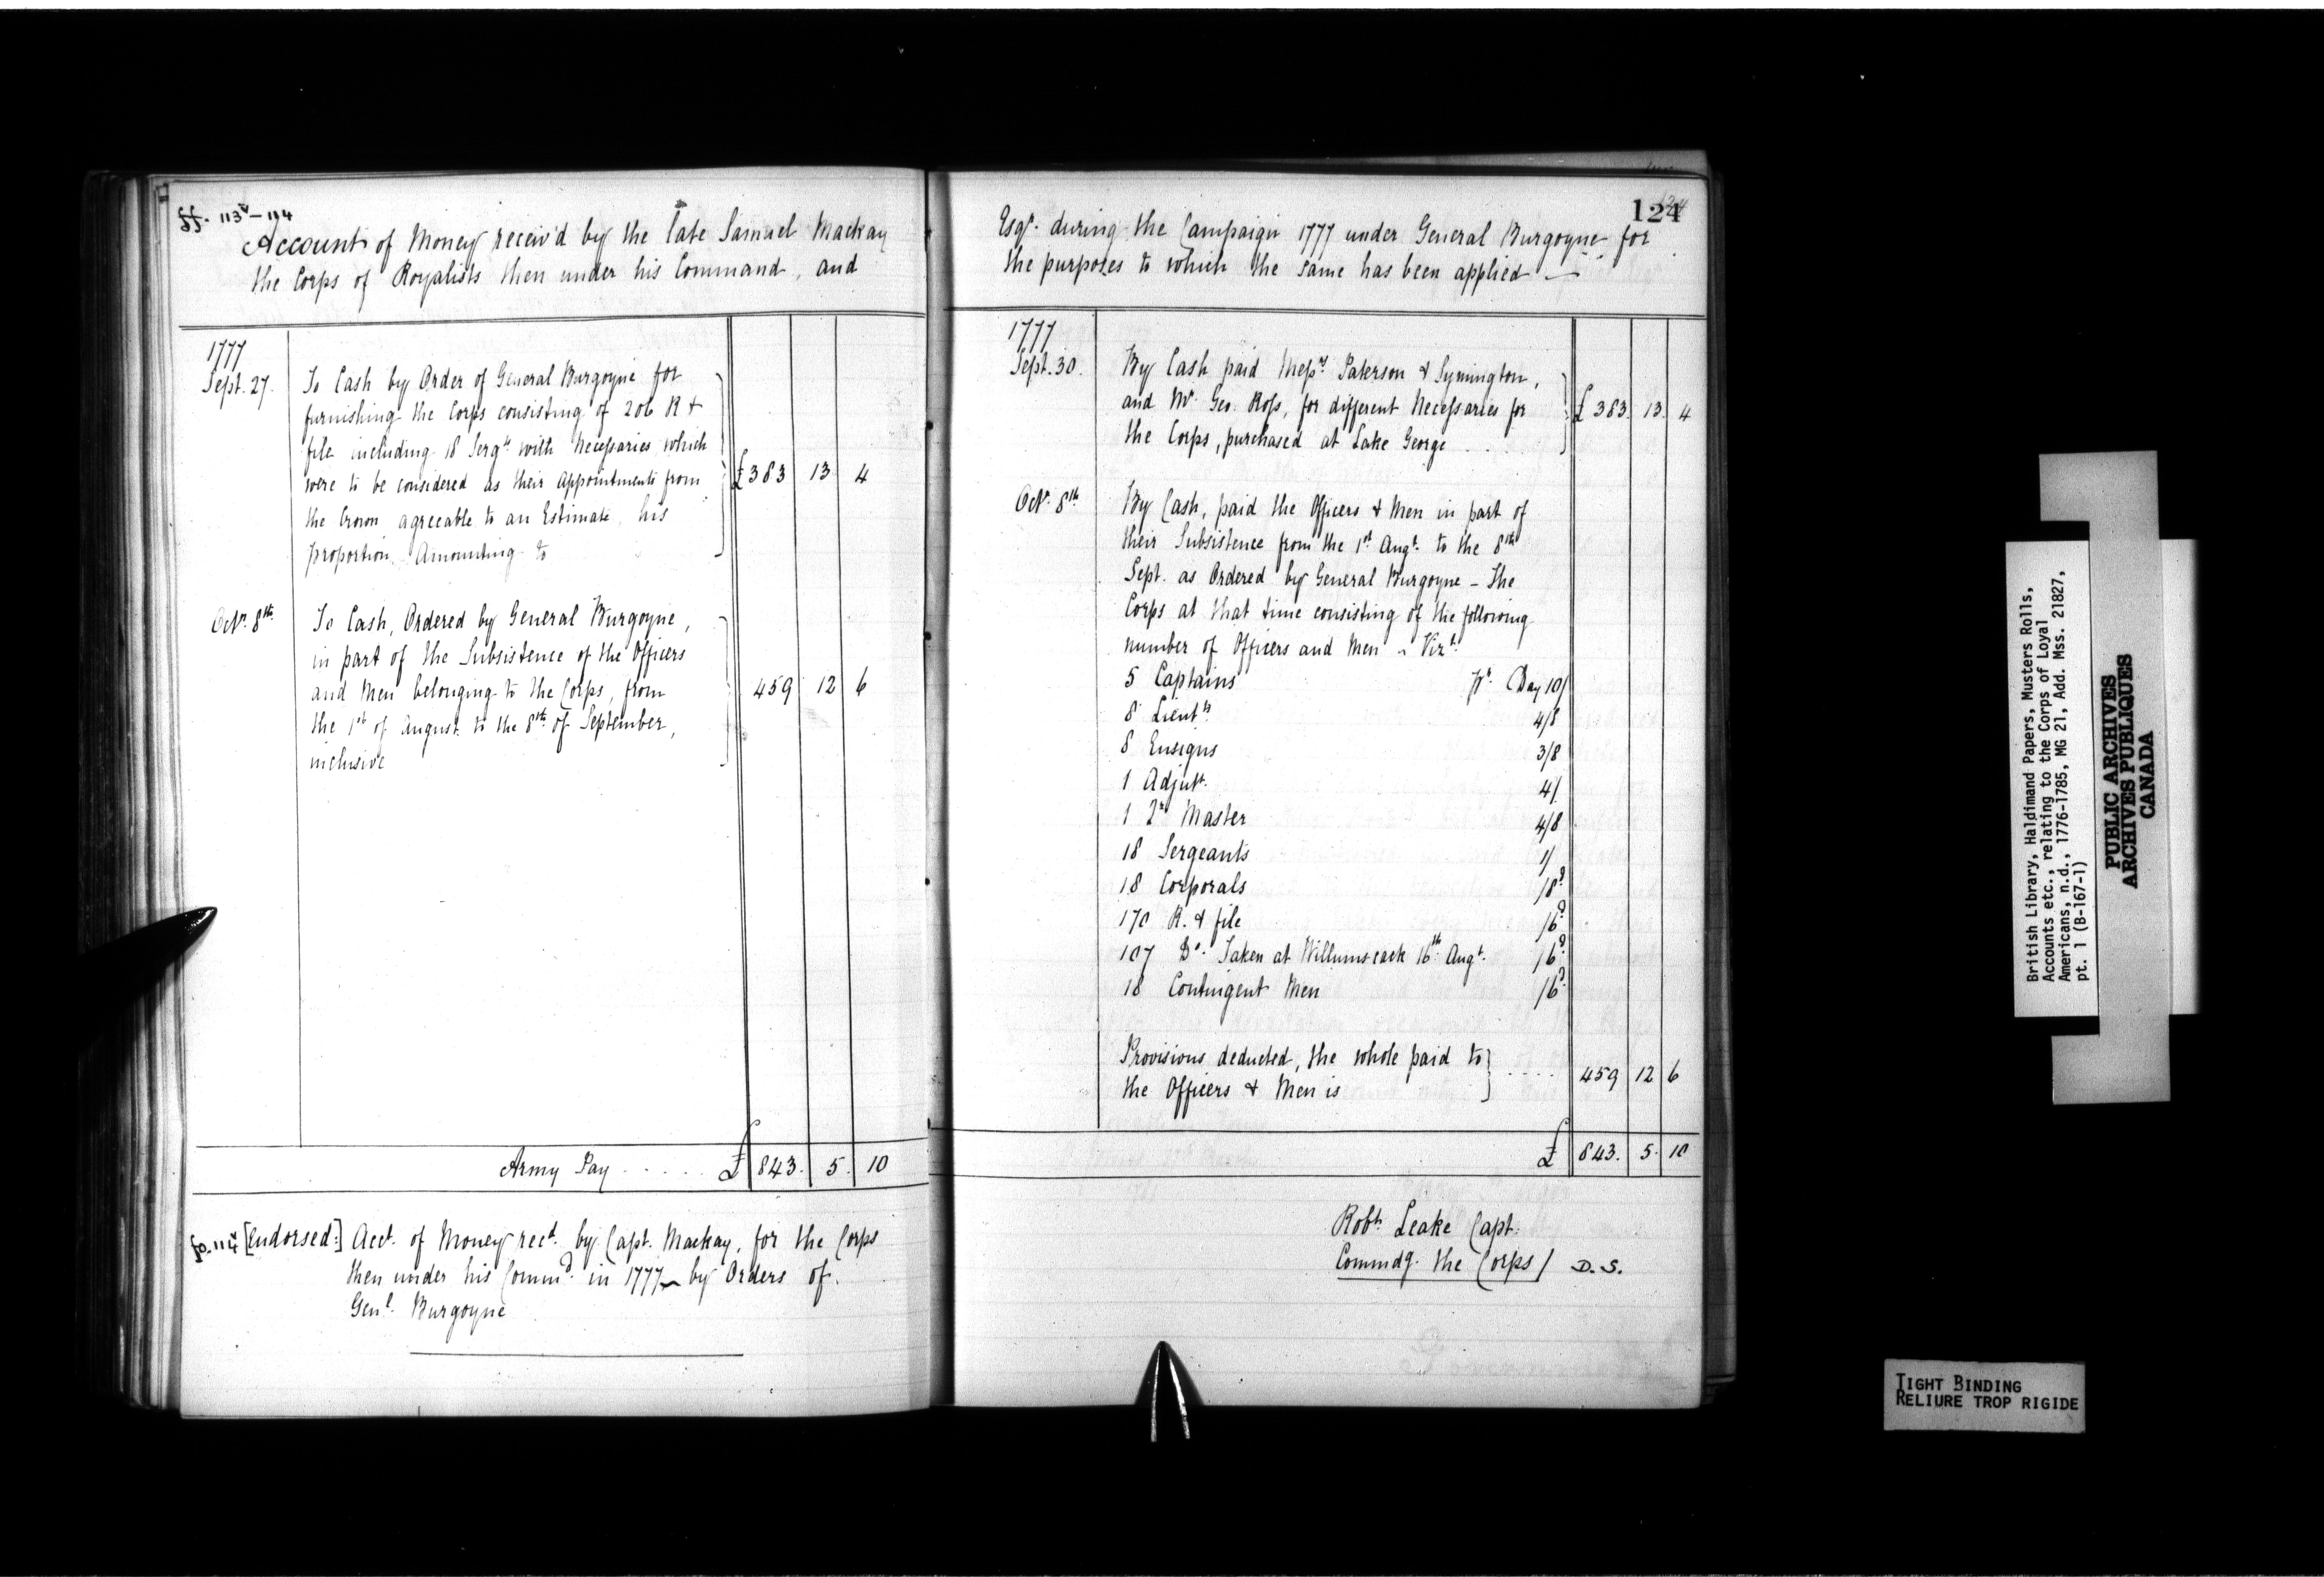 ff. 113v – 114
Account of Money receiv'd by the late Samuel Mackay
the Corps of Royalists then under his Command, and
1777
Sept. 27. To Cash by Order of General Burgoyne for
furnishing the Corps consisting of 206 R +
file including 18 Sergts with Necessaries which
were to be considered as their Appointments from
the Crown agreeable to an Estimate, his
proportion Amounting to
£383 13 4
Octr. 8th. To Cash, Ordered by General Burgoyne,
in part of the Subsistence of the Officers
and Men belonging to the Corps, from
the 1st of August to the 8th of September,
inclusive
459 12 6
Army Pay . . . . . £ 843. 5. 10
fo. 114v [Endorsed:] Acct. of Money recd. by Capt. Mackay, for the Corps
then under his Command in 1777 by Orders of
Genl. Burgoyne
124
Esqr. during the Campaign 1777 under General Burgoyne for
the purposes to which the same has been applied —
1777
Sept. 30. By Cash paid Messrs Paterson & Symington,
and Mr. Geo. Ross, for different Necessaries for
the Corps, purchased at Lake George . . . .
£ 383. 13. 4
Octr. 8th By Cash, paid the Officers & Men in part of
their Subsistence from the 1st Augt. to the 8th
Sept. as Ordered by General Burgoyne – The
Corps at that time consisting of the following
number of Officers and Men – Vizt.
5 Captains pr. Day 10/
8 Lieuts 4/8
8 Ensigns 3/8
1 Adjutt. 4/
1 Qr Master 4/8
18 Sergeants 1/
18 Corporals /8d
170 R. & file /6d
107 Do. Taken at Willumscack 16th Augt. /6d
18 Contingent Men /6d
Provisions deducted, the whole paid to
the Officers & Men is
459 12 6
£ 843. 5. 10
Robt. Leake Capt.
Commdg. the Corps / D.S.
British Library, Haldimand Papers, Musters Rolls,
Accounts etc., relating to the Corps of Loyal
Americans, n.d., 1776-1785, MG 21, Add. Mss. 21827,
pt. 1 (B-167-1)
PUBLIC ARCHIVES
ARCHIVES PUBLIQUES
CANADA
TIGHT BINDING
RELIURE TROP RIGIDE